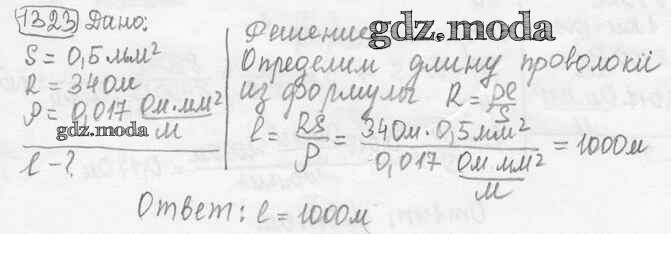 1323 Дано:
S = 0,5 мм²
R = 34 Ом
ρ = 0,017 Ом·мм²/м
gdz.moda
l - ?
Решение
gdz.moda
Определим длину проволоки
из формулы R = ρl/S
l = RS/ρ = 34 Ом · 0,5 мм² / 0,017 Ом·мм²/м = 1000 м
Ответ: l = 1000 м